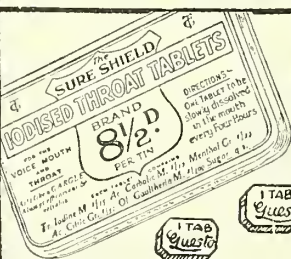 The
SURE SHIELD
IODISED THROAT TABLETS
BRAND
8½D.
PER TIN
FOR THE
VOICE, MOUTH
AND
THROAT
DIRECTIONS:-
ONE TABLET to be
slowly dissolved
in the mouth
every Four Hours
EACH TABLET CONTAINS
Tr. Iodine M. Ac. Carbolic M. Menthol Gr.
Ac. Citric Gr. Ol. Gaultheria M. Sugar, q.s.
1 TAB
Questo
1 TAB
Ques